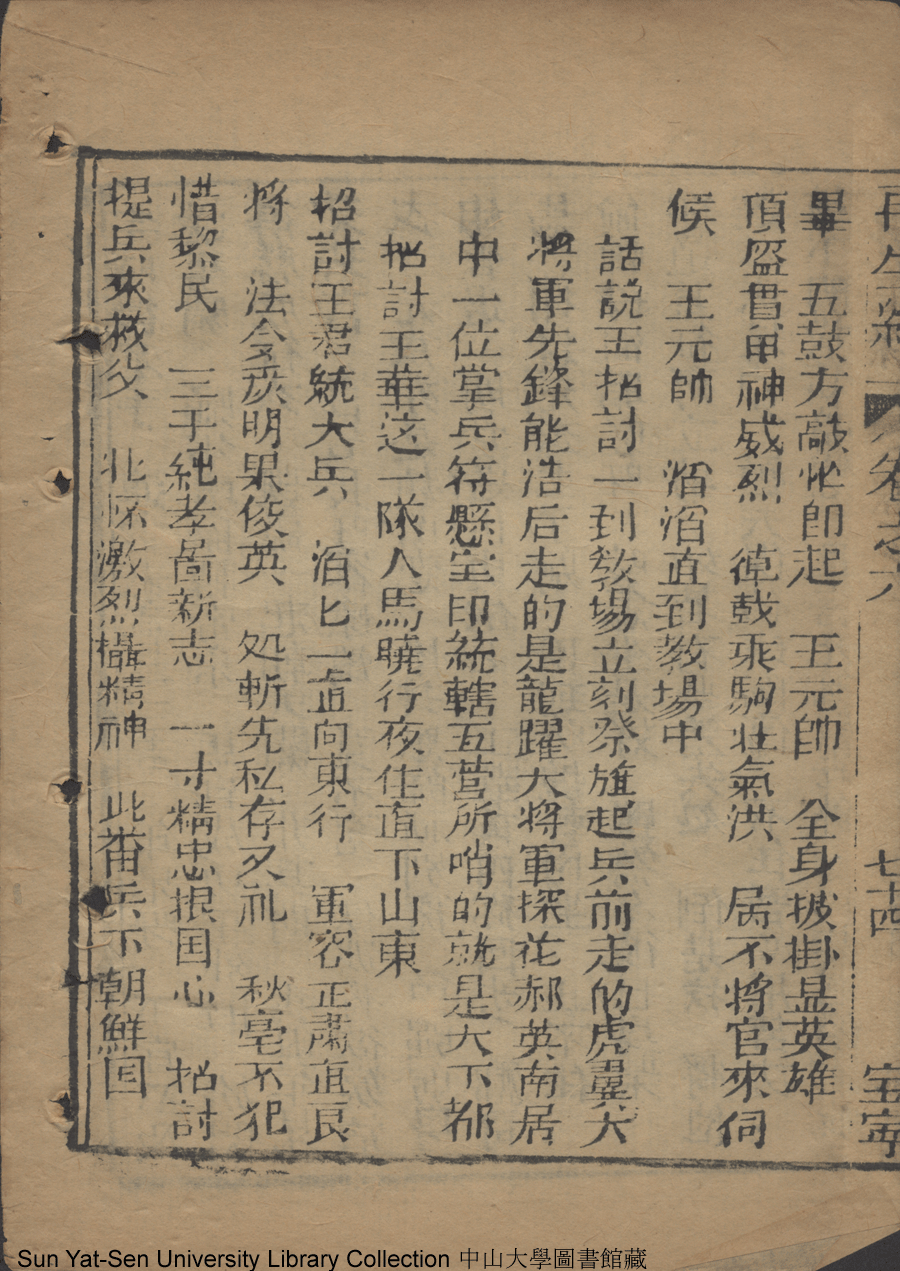 再生緣 卷之六 七十四 宝寧
畢 五鼓方敲帅即起 王元帥 全身披掛显英雄
頂盔貫甲神威烈 倬戟乘駒壮氣洪 居不將官來伺
候 王元帥 滔滔直到教場中
話説王招討一到教場立刻祭旗起兵前走的虎翼大
將軍先鋒能浩后走的是龍躍大将軍探花郝英南居
中一位掌兵符懸宝印統轄五营所哨的就是大下都
招討王華这一隊人馬曉行夜住直下山東
招討王君統大兵 滔匕一直向東行 軍容正肅直良
将 法令灰明果俊英 処斬先私存义礼 秋毫不犯
惜黎民 三千純孝啚新志 一寸精忠报国心 招討
提兵來救父 北怀激烈攝精神 此番兵下朝鮮国
Sun Yat-Sen University Library Collection 中山大學圖書館藏